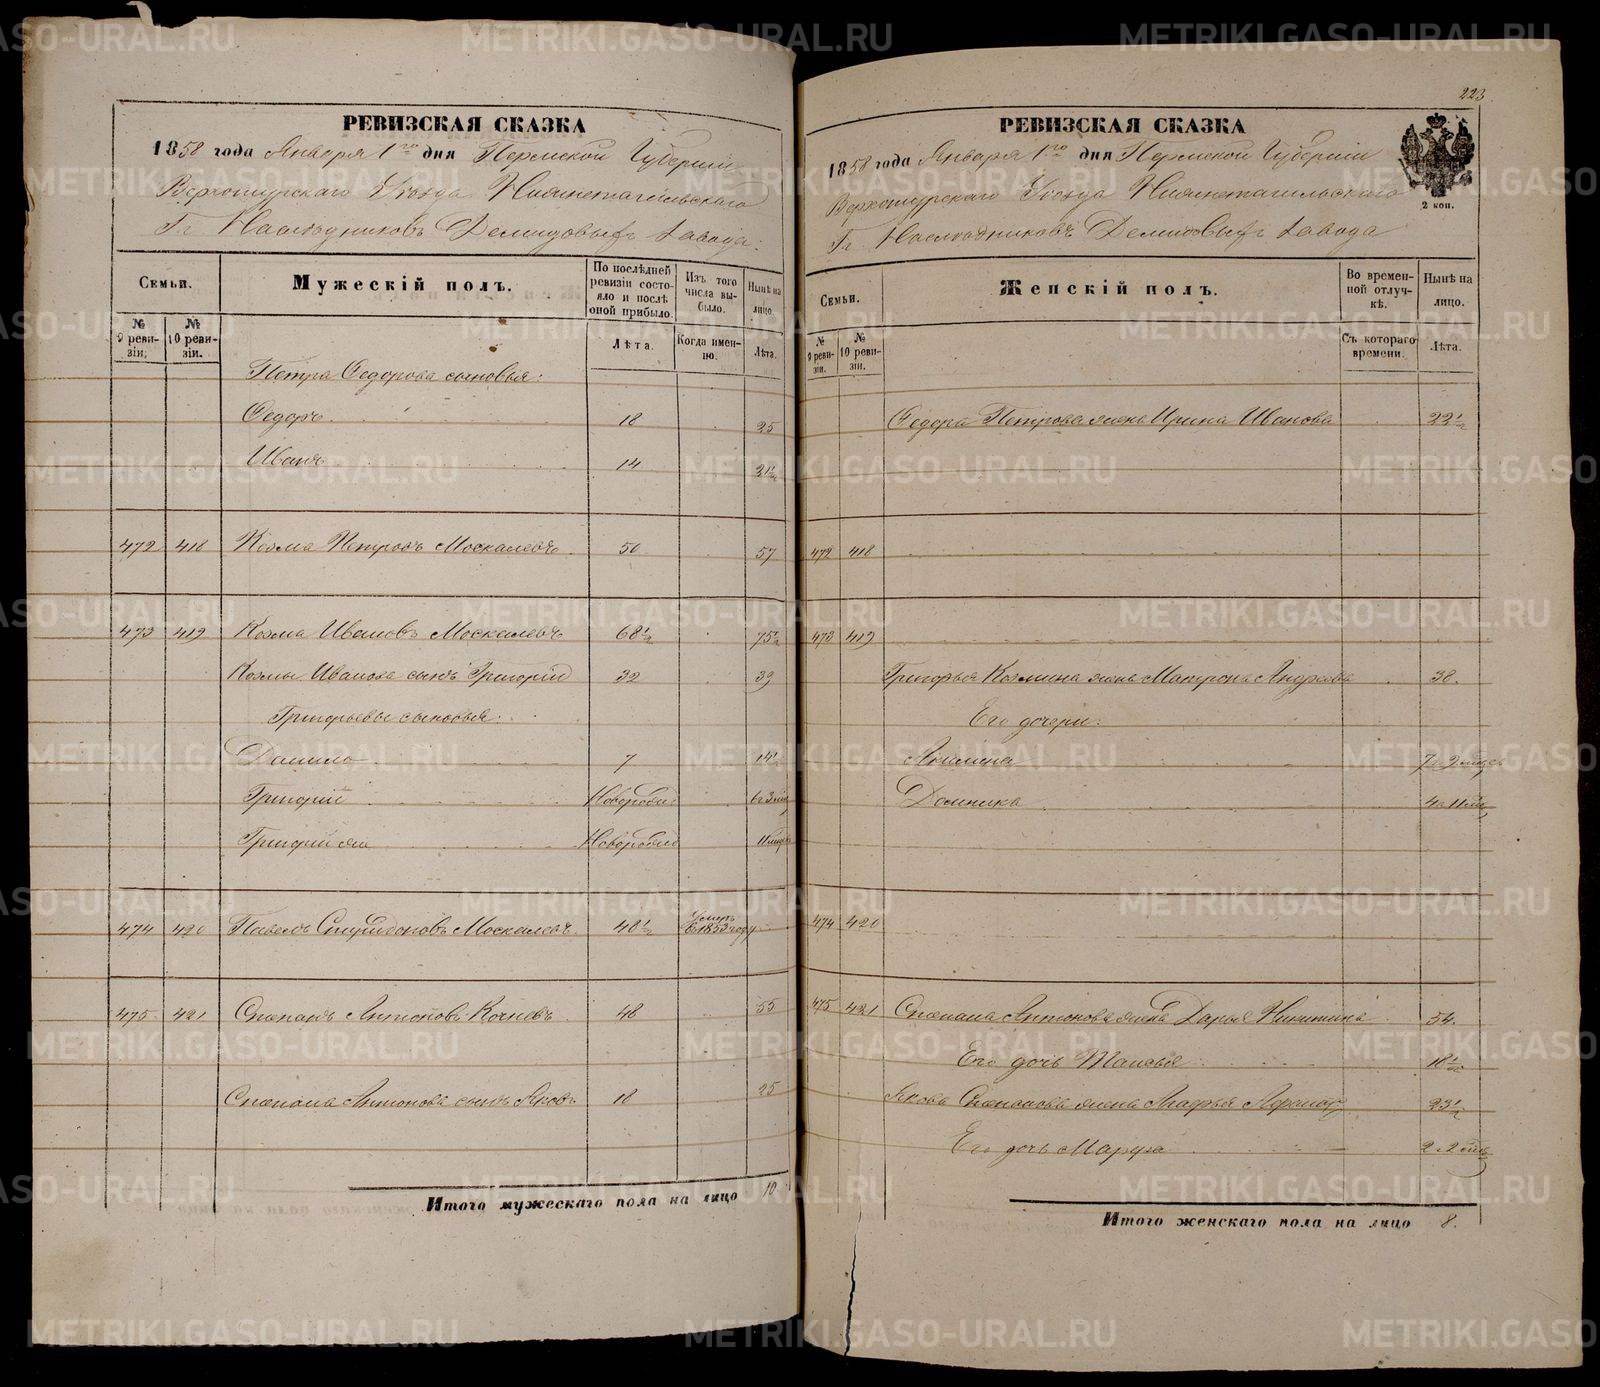 РЕВИЗСКАЯ СКАЗКА
1858 года Января 1го дня Пермской Губернии
Верхотурскаго Уезда Нижнетагильскаго
Гг Наследниковъ Демидовыхъ Завода:
Семьи. Мужескій полъ. По послѣдней ревизіи состояло и послѣ оной прибыло. Изъ того числа выбыло. Нынѣ на лицо.
№ 9 ревизіи. № 10 ревизіи. Лѣта. Когда именно. Лѣта.
Петра Федорова сыновья:
Федоръ 18 25
Иванъ 14 21½
472 418 Козма Петровъ Москалевъ 50 57
473 419 Козма Ивановъ Москалевъ 68½ 75½
Козмы Иванова сынъ Григорій 32 39
Григорьевы сыновья:
Данило 7 14½
Григорій Новорожд 6 г 3 мц
Григорій же Новорожд 11 мцв
474 420 Павелъ Спиридоновъ Москалевъ 48½ Умеръ в 1853 году
475 421 Степанъ Антоновъ Кочневъ 48 55
Степана Антонова сынъ Яковъ 18 25
Итого мужескаго пола на лицо 10
223
РЕВИЗСКАЯ СКАЗКА
1858 года Января 1го дня Пермской Губерніи
Верхотурскаго Уезда Нижнетагильскаго
Гг Наследниковъ Демидовыхъ Завода
2 коп.
Семьи. Женскій полъ. Во временной отлучкѣ. Нынѣ на лицо.
№ 9 ревизіи. № 10 ревизіи. Съ котораго времени. Лѣта.
Федора Петрова жена Ирина Иванова 22½
472 418
473 419
Григорья Козмина жена Матрона Андреева 38.
Его дочери:
Акилина 7 г 9 мцов
Домника 4 г 11 мц
474 420
475 421 Степана Антонова жена Дарья Никитина 54.
Его дочь Таисья 18½
Якова Степанова жена 23½
Его дочь Марфа 2 г 2 мц
Итого женскаго пола на лицо 8.
METRIKI.GASO-URAL.RU